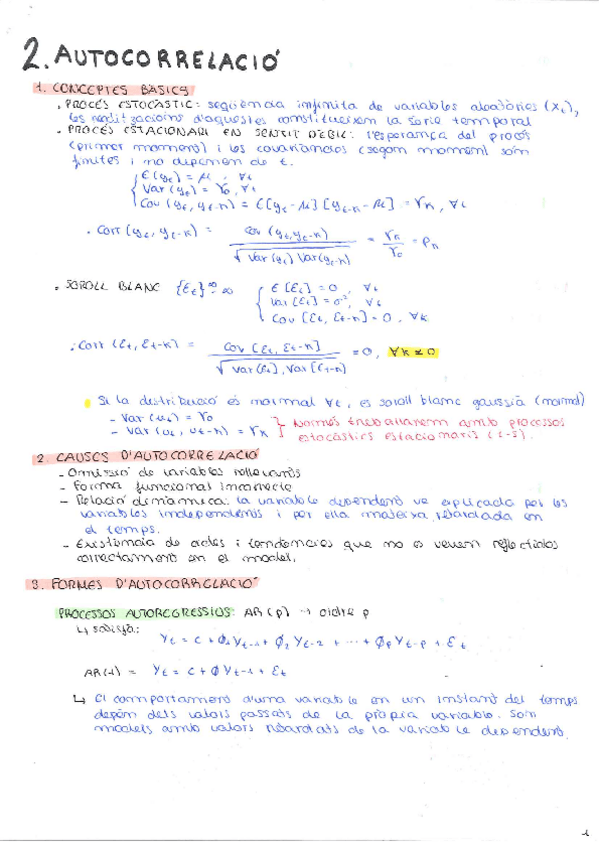 2. AUTOCORRELACIÓ
1. CONCEPTES BÀSICS
• PROCÉS ESTOCÀSTIC: seqüència infinita de variables aleatòries (Xt),
les realitzacions d'aquestes constitueixen la sèrie temporal
• PROCÉS ESTACIONARI EN SENTIT DÈBIL: l'esperança del procés
(primer moment) i les covariàncies (segon moment) són
finites i no depenen de t.
E(yt) = μ, ∀t
Var(yt) = γ0, ∀t
Cov(yt, yt-k) = E[yt - μ][yt-k - μ] = γk, ∀t
• Corr(yt, yt-k) = Cov(yt, yt-k) / √Var(yt) Var(yt-k) = γk / γ0 = ρk
• SOROLL BLANC {Et}∞-∞
E[Et] = 0, ∀t
Var[Et] = σ², ∀t
Cov[Et, Et-k] = 0, ∀k
• Corr(Et, Et-k) = Cov[Et, Et-k] / √Var(Et), Var[Et-k) = 0, ∀k≠0
• Si la distribució és normal ∀t, és soroll blanc gaussià (normal)
- Var(ut) = γ0
- Var(ut, ut-k) = γk } Només treballarem amb processos
estocàstics estacionaris (I-S).
2. CAUSES D'AUTOCORRELACIÓ
- Omissió de variables rellevants
- Forma funcional incorrecte
- Relació dinàmica: la variable dependent ve explicada por les
variables independents i per ella mateixa retardada en
el temps.
- Existència de cicles i tendències que no es veuen reflectides
correctament en el model.
3. FORMES D'AUTOCORRELACIÓ
PROCESSOS AUTOREGRESSIUS: AR(p) → ordre p
↳ satisfà:
Yt = c + Ø1Yt-1 + Ø2Yt-2 + ... + ØpYt-p + Et
AR(1) = Yt = c + ØYt-1 + Et
↳ El comportament d'una variable en un instant del temps
depèn dels valors passats de la pròpia variable. Són
models amb valors retardats de la variable dependent.
1